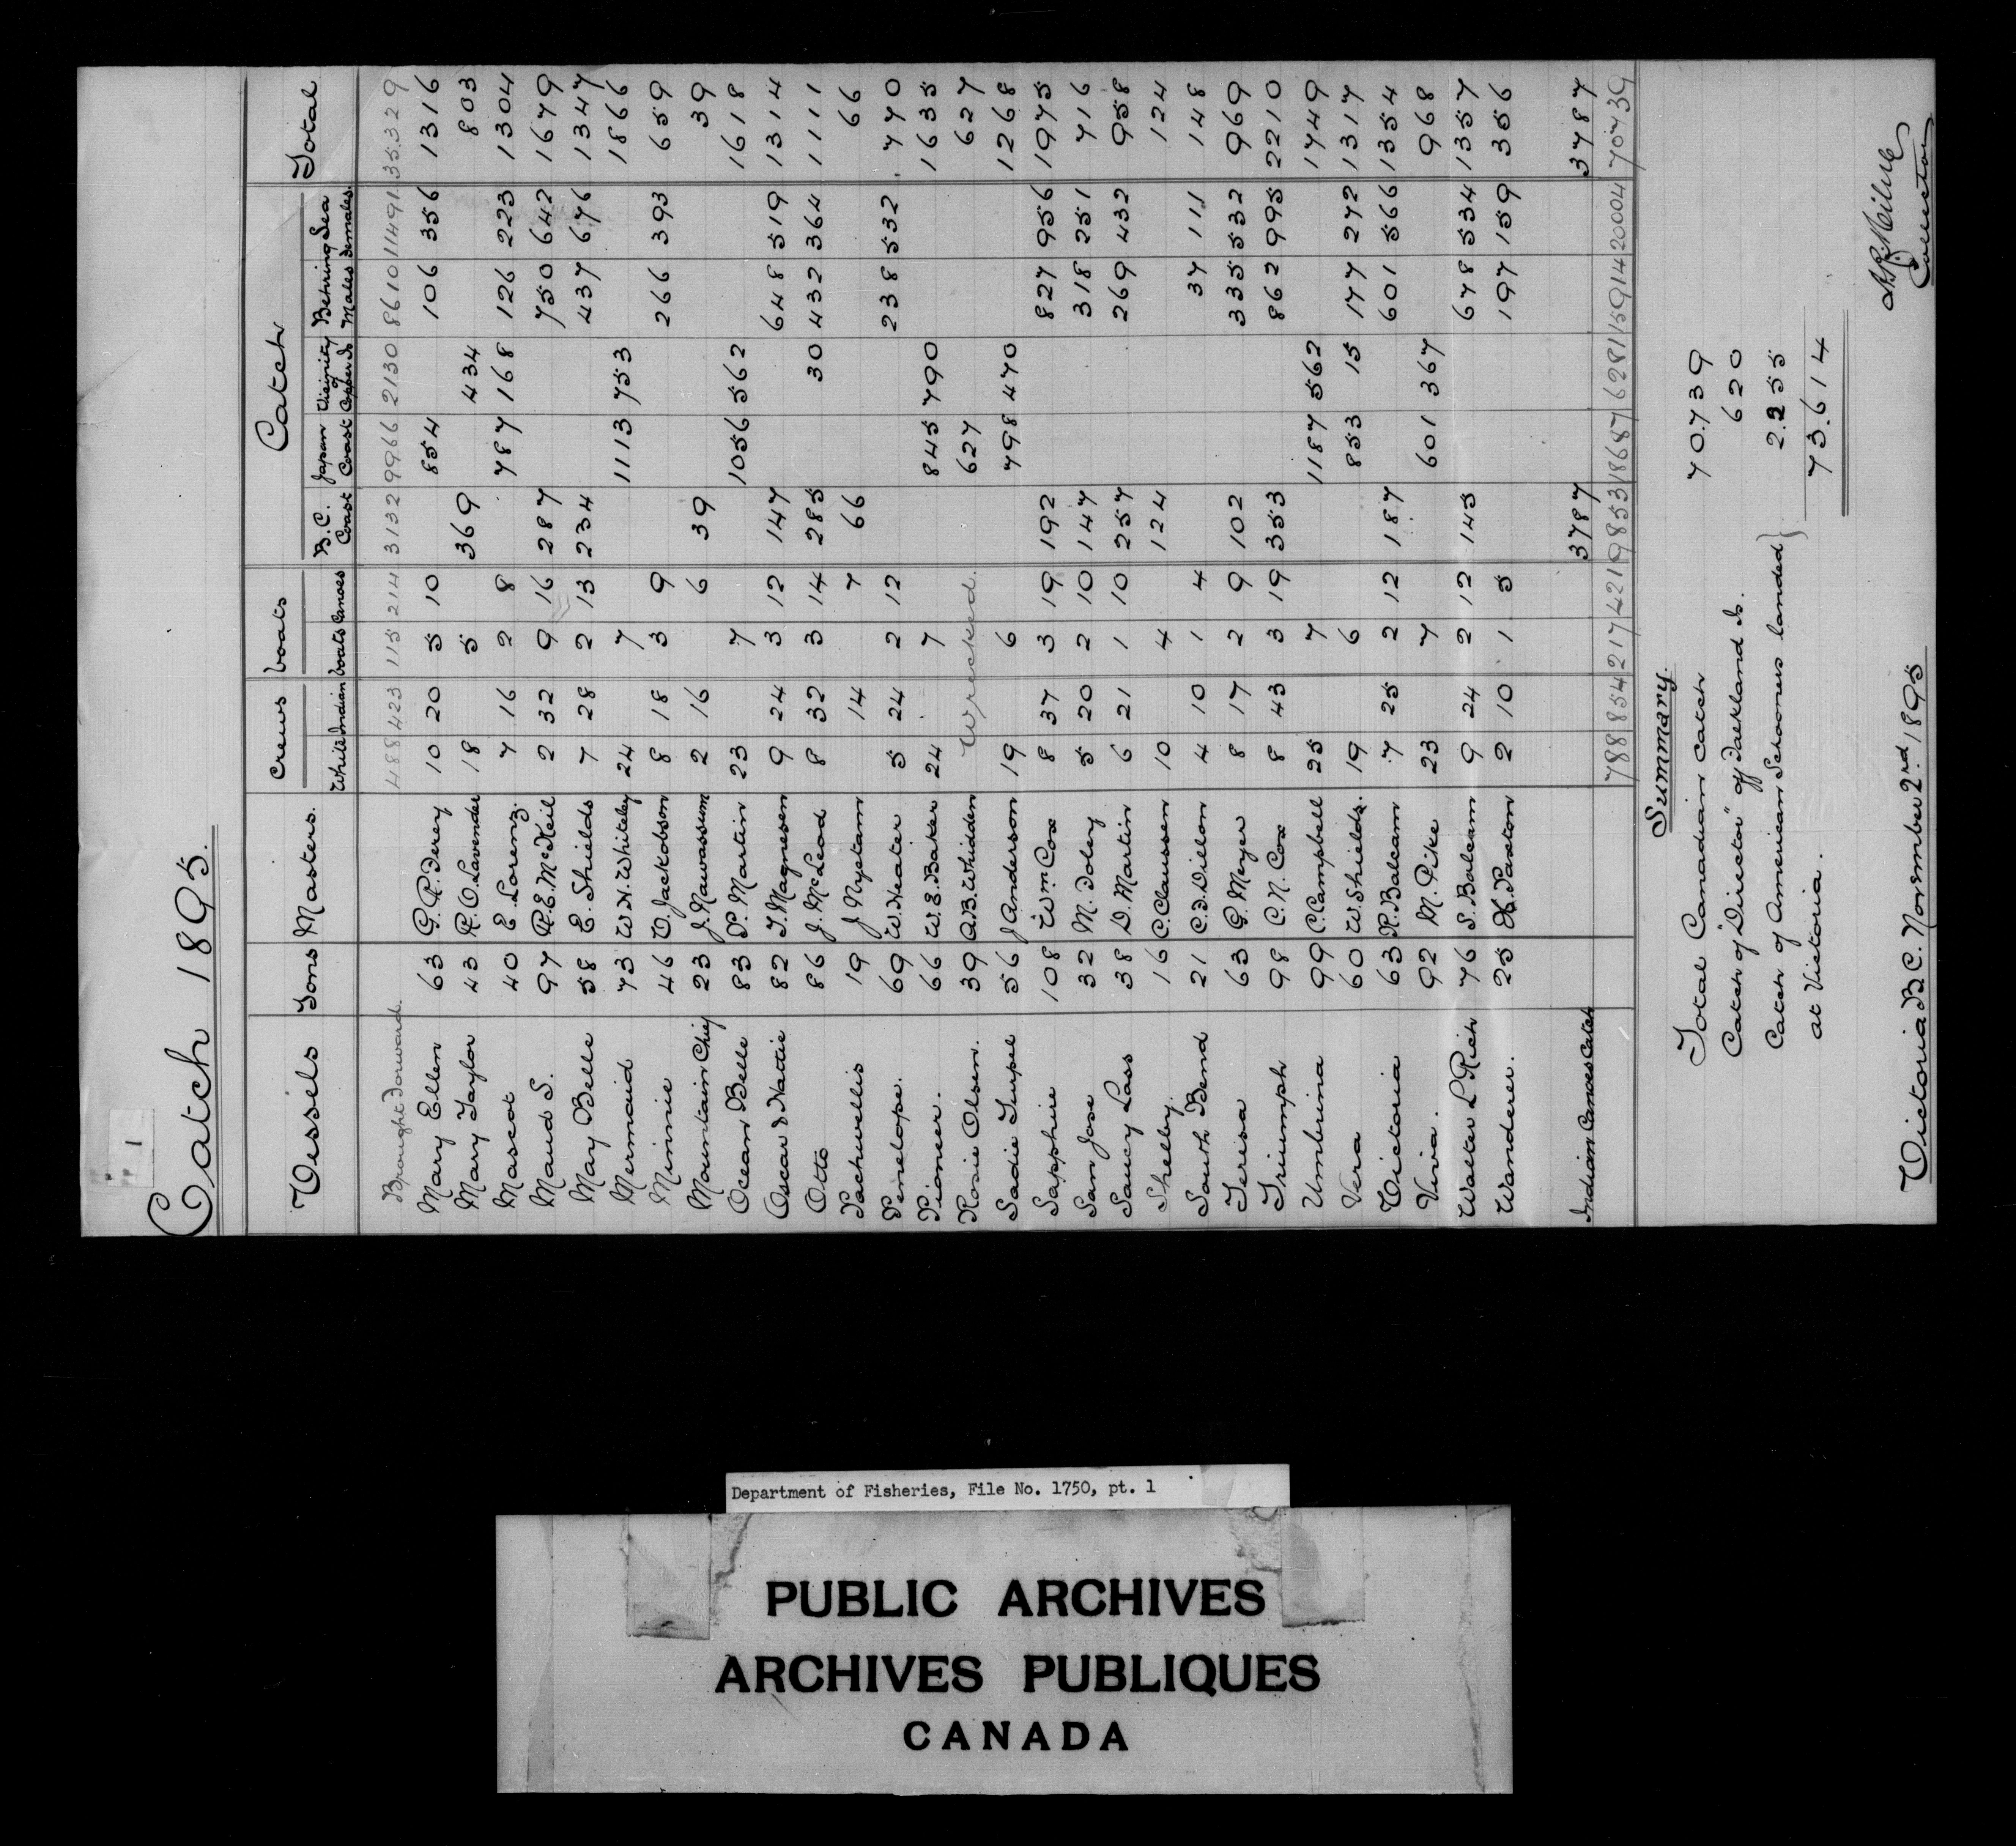 1
Catch 1895.
Vessels Tons Masters. Crews boats Catch Total
White Indian boats canoes B.C. Coast Japan Coast Vicinity of Copper Is Behring Sea Males Females.
Brought forward. 488 423 115 214 3132 9966 2130 8610 11491 35,329
Mary Ellen 63 10 20 5 10 854 106 356 1316
Mary Taylor 43 R.O. Lavender 18 5 369 434 803
Mascot 40 E. Lorenz. 7 16 2 8 787 168 126 223 1304
Maud S. 97 R.E. McKeil 2 32 9 16 287 750 642 1679
May Belle 58 E. Shields 7 28 2 13 234 437 676 1347
Mermaid 73 W.H. Whiteley 24 7 1113 753 1866
Minnie 46 V. Jackobson 8 18 3 9 266 393 659
Mountain Chief 23 J. Nawassum 2 16 6 39 39
Ocean Belle 83 P. Martin 23 7 1056 562 1618
Oscar & Hattie 82 T. Magnesen 9 24 3 12 147 648 519 1314
Otto 86 J. McLeod 8 32 3 14 285 30 432 364 1111
Pachwellis 19 J. Nyetam 14 7 66 66
Penelope. 69 W. Heater 5 24 2 12 238 532 770
Pioneer. 66 W.E. Baker 24 7 845 790 1635
Rosie Olsen. 39 A.B. Whidden Wrecked. 627 627
Sadie Turpel 56 J Anderson 19 6 798 470 1268
Sapphire 108 Wm. Cox 8 37 3 19 192 827 956 1975
San Jose 32 M. Foley 5 20 2 10 147 318 251 716
Saucy Lass 38 D. Martin 6 21 1 10 257 269 432 958
Shelby. 16 C. Claussen 10 4 124 124
South Bend 21 C.F. Dillon 4 10 1 4 37 111 148
Teresa 63 G. Meyer 8 17 2 9 102 335 532 969
Triumph 98 C.N. Cox 8 43 3 19 353 862 995 2210
Umbrina 99 C. Campbell 25 7 1187 562 1749
Vera 60 W. Shields. 19 6 853 15 177 272 1317
Victoria 63 R. Balcam 7 25 2 12 187 601 566 1354
Viva. 92 M. Pike 23 7 601 367 968
Walter L Rich 76 S. Balcam 9 24 2 12 145 678 534 1357
Wanderer. 25 H. Paxton 2 10 1 5 197 159 356
Indian Canoes Catch 3787 3787
788 854 217 421 9853 18687 6281 15914 20004 70739
Summary.
Total Canadian Catch 70.739
Catch of "Director" off Falkland Is. 620
Catch of American Schooners landed } 2.255
at Victoria.
73.614
Victoria B.C. November 2nd 1895
A.R. Milne
Collector
Department of Fisheries, File No. 1750, pt. 1
PUBLIC ARCHIVES
ARCHIVES PUBLIQUES
CANADA